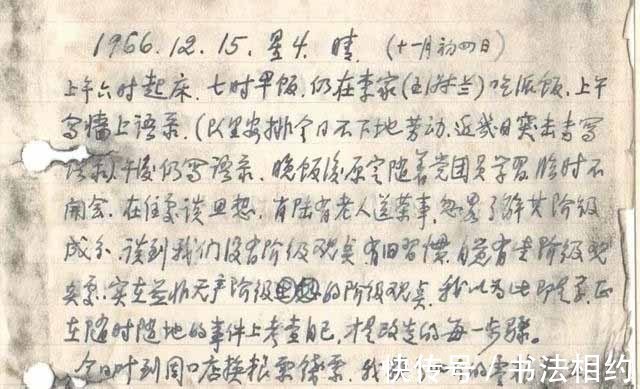 1966.12.15.星4.晴.(十一月初四日)
上午六时起床.七时早饭.仍在李家(王淑兰)吃派饭.上午
写墙上语录.(队里安排今日不下地劳动.近几日突击书写
语录)午後仍写语录.晚饭後原定随着党团员学习临时不
开会.在住处谈思想.有陆有老人送菜事.忽略了解其阶级
成分.谈到我们没有阶级观点.有旧习惯.自觉有
实在是非无产阶级思想的阶级观点.我以为此即是
在随时随地的事件上考查自己.才是改造的每一步骤。
今日时到周口店换粮票
快传号 书法相约